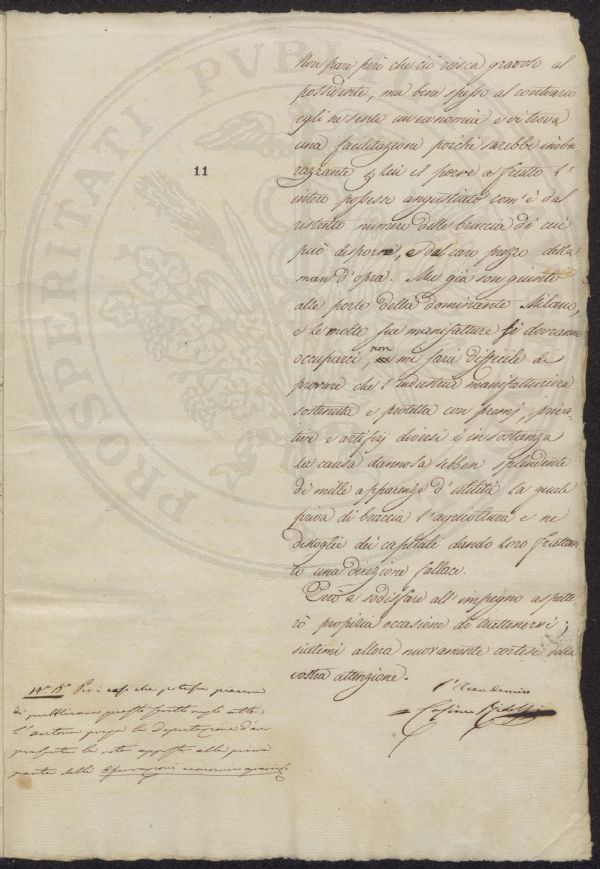 11
Non pare però che ciò riesca gravoso al
possidente, ma bene spesso al contrario
egli ne sente un'economia e vi trova
una facilitazione poichè sarebbe imba-
razzante per lui il porre a frutto l'
intero possesso angustiato com'è dal
ristretto numero delle braccia di cui
può disporre, e dal caro prezzo della
man d'opra. Ma già son giunto
alle porte della dominante Milano,
e se molte sua manifatture si dovranno
occuparci, non mi sarà difficile di
provare che l'industria manifatturiera
sostenuta e protetta con premj, priva-
tive e artifizj diversi è in sostanza
una causa dannosa sebben splendente
di mille apparenze d'utilità la quale
priva di braccia l'agricoltura e ne
distoglie dei capitali dando loro frattan-
to una direzione fallace.
Però a sodisfare all'impegno aspette-
rò propizia occasione di trattenervi;
siatemi allora nuovamente cortesi della
vostra attenzione.
l'Accademico
Cosimo Ridolfi
N.B. Per i casi che potesse piacere
di pubblicare questo scritto negli atti,
l'autore prega la deputazione d'aver
presente la nota apposta alla prima
parte delle Osservazioni economico agrarie